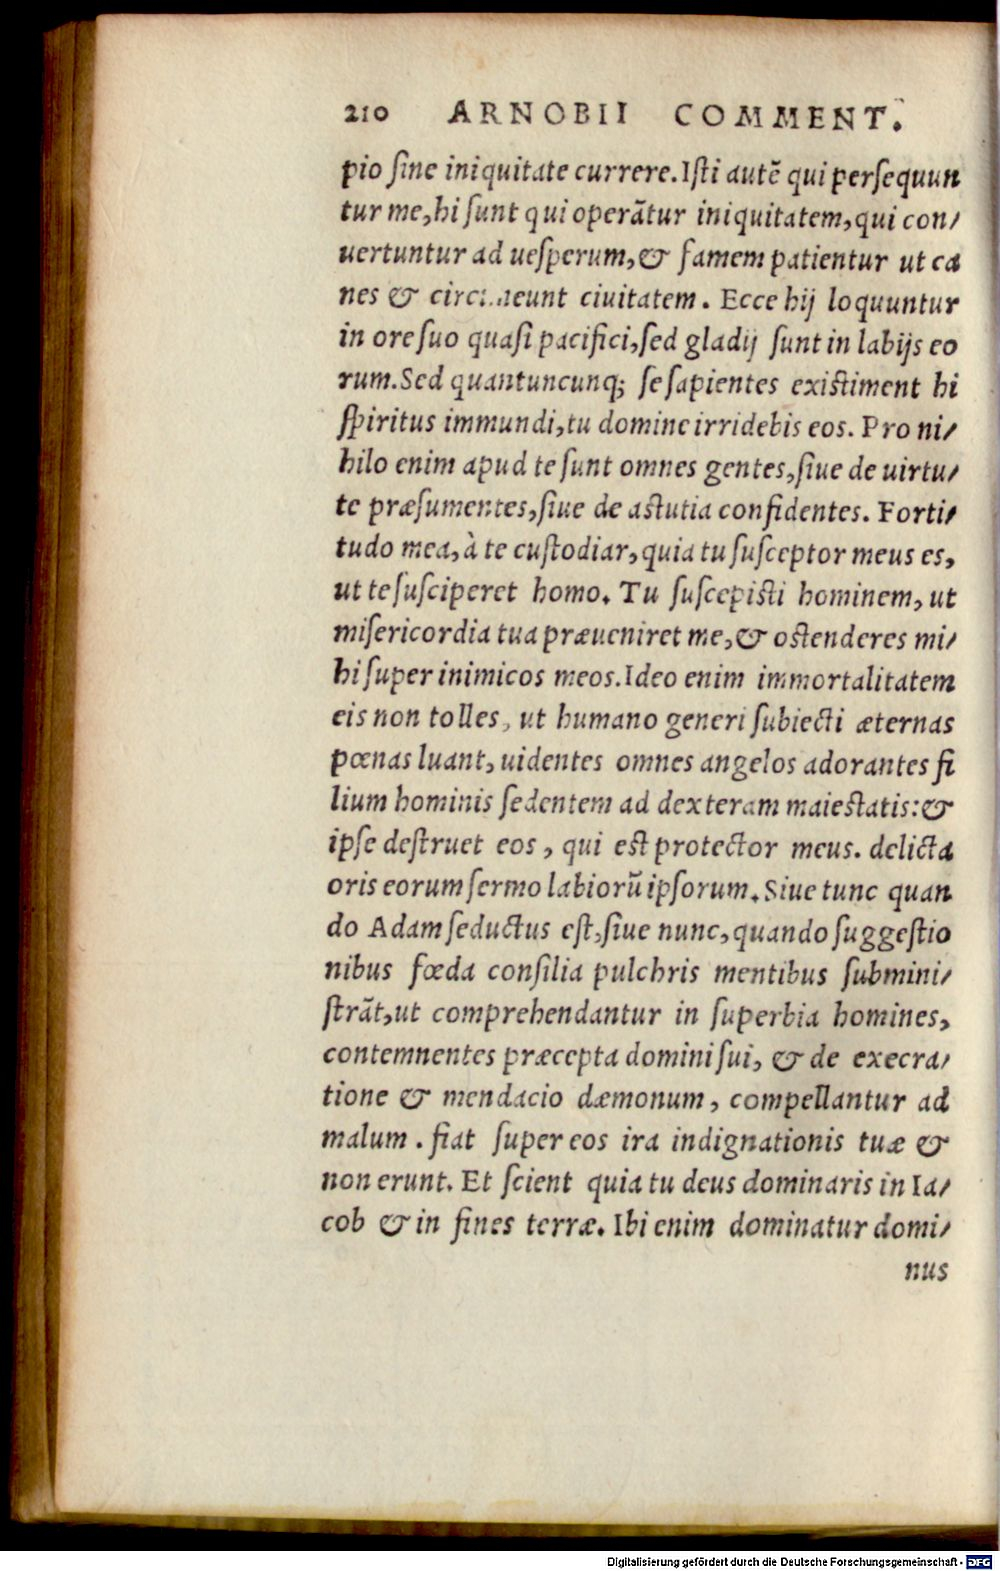 210 ARNOBII COMMENT.
pio ſine iniquitate currere. Iſti autē qui perſequun
tur me, hi ſunt qui operãtur iniquitatem, qui con/
uertuntur ad ueſperum, & famem patientur ut ca
nes & ciuitatem. Ecce hij loquuntur
in ore ſuo quaſi pacifici, ſed gladij ſunt in labijs eo
rum. Sed quantuncunq; ſe ſapientes exiſtiment hi
ſpiritus immundi, tu domine irridebis eos. Pro ni/
hilo enim apud te ſunt omnes gentes, ſiue de uirtu/
te præſumentes, ſiue de aſtutia confidentes. Forti/
tudo mea, à te cuſtodiar, quia tu ſuſceptor meus es,
ut te ſuſciperet homo. Tu ſuſcepiſti hominem, ut
miſericordia tua præueniret me, & oſtenderes mi/
hi ſuper inimicos meos. Ideo enim immortalitatem
eis non tolles, ut humano generi ſubiecti æternas
pœnas luant, uidentes omnes angelos adorantes fi
lium hominis ſedentem ad dexteram maieſtatis: &
ipſe deſtruet eos, qui eſt protector meus. delicta
oris eorum ſermo labiorũ ipſorum. Siue tunc quan
do Adam ſeductus eſt, ſiue nunc, quando ſuggeſtio
nibus fœda conſilia pulchris mentibus ſubmini/
ſtrãt, ut comprehendantur in ſuperbia homines,
contemnentes præcepta domini ſui, & de execra/
tione & mendacio dæmonum, compellantur ad
malum. fiat ſuper eos ira indignationis tuæ &
non erunt. Et ſcient quia tu deus dominaris in Ia/
cob & in fines terræ. Ibi enim dominatur domi/
nus
Digitalisierung gefördert durch die Deutsche Forschungsgemeinschaft - DFG